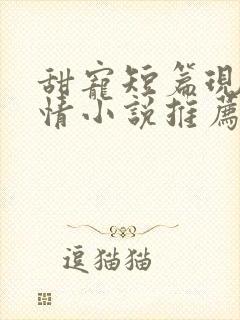 甜寵短篇現
情小說推薦
逗猫猫